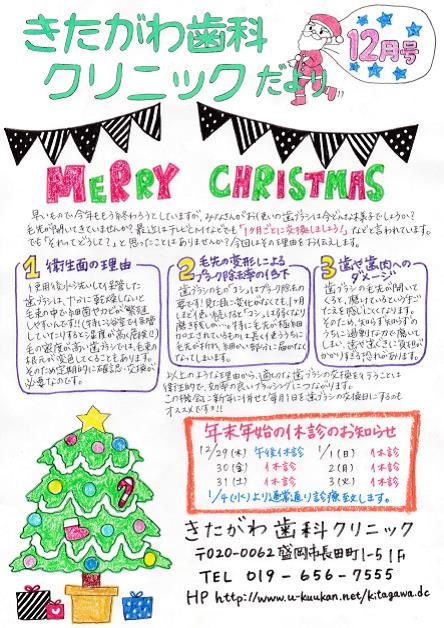 きたがわ歯科
クリニックだより
12月号
MERRY CHRISTMAS
早いもので今年ももう終わろうとしていますが、みなさんがお使いの歯ブラシは今どんな様子でしょうか?
毛先が開いてきていませんか?最近はテレビCMなどでも「1ヶ月ごとに交換しましょう!」などと言われています。
でも「それってどうして?」と思ったことはありませんか?今回はその理由をお伝えします。
1 衛生面の理由
1ヶ月
歯ブラシは、十分に乾燥しないと
毛束の中で細菌やカビが繁殖
しやすいんです!!(特に浴室で保管
していたりすると湿度が高く危険!!)
毛の密度が高い歯ブラシでは、毛束の
根元が変色してくることもあります。
そのため定期的に確認・交換が
必要なのです。
2 毛先の変形による
プラーク除去率の低下
歯ブラシのもつ「コシ」はプラーク除去の
要です!見た目に変化がなくても、1ヶ月
ほど使い続けると「コシ」は弱くなり
磨き残しが…。特に毛先が極細
加工されているものは長く使ううちに
毛先がすれ、細かい部分に届かなく
なってしまいます。
3 歯や歯肉への
ダメージ
歯ブラシの毛先が開いて
くると、磨けているというすご
たえを感じにくくなります。
そのため、知らず知らずの
うちに過剰な力で磨いて
しまい、歯や歯ぐきに負担が
かかりすぎる恐れがあります。
以上のような理由から、適切な歯ブラシの交換を行うことは
衛生的で、効率の良いブラッシングにつながります。
この機会に新年に併せて毎月1日を歯ブラシの交換日にするのも
オススメです!!
年末年始の休診のお知らせ
12/29(木) 午後休診 1/1(日) 休診
30(金) 休診 2(月) 休診
31(土) 休診 3(火) 休診
1/4(水)より通常通り診療致します。
きたがわ歯科クリニック
〒020-0062 盛岡市長田町1-5 1F
TEL 019-656-7555
HP http://www.u-kuukan.net/kitagawa.dc